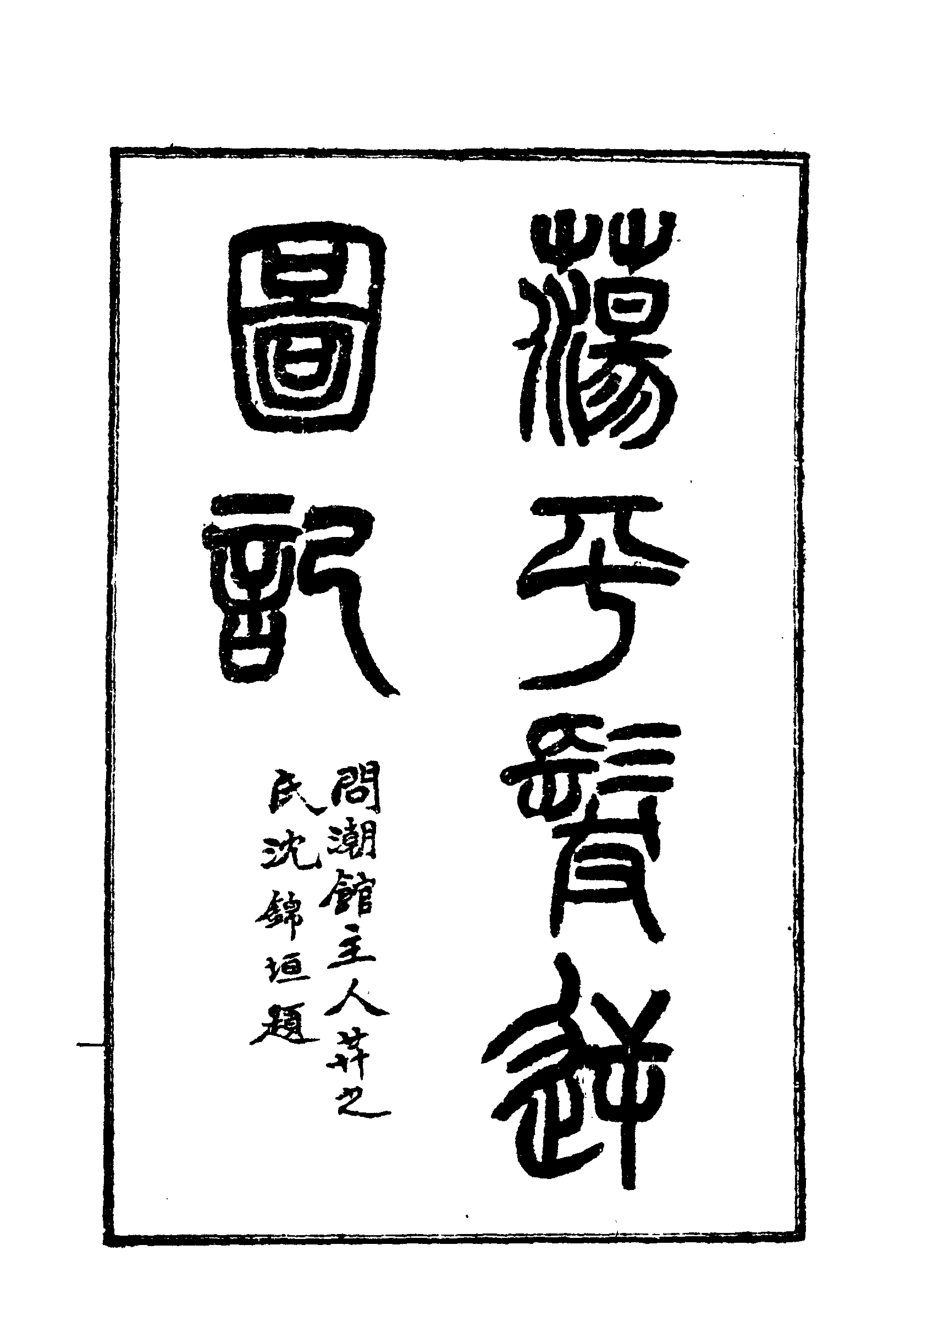 蕩平髮逆
圖記
問潮館主人莽之
氏沈錦垣題